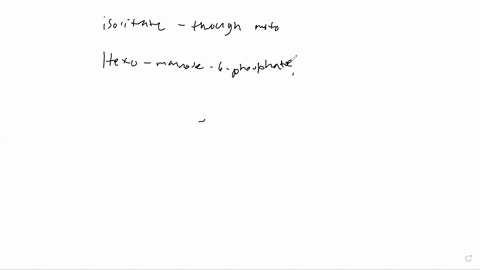 isocitrate - though mito
Hexo - manose - 6 - phosphate,